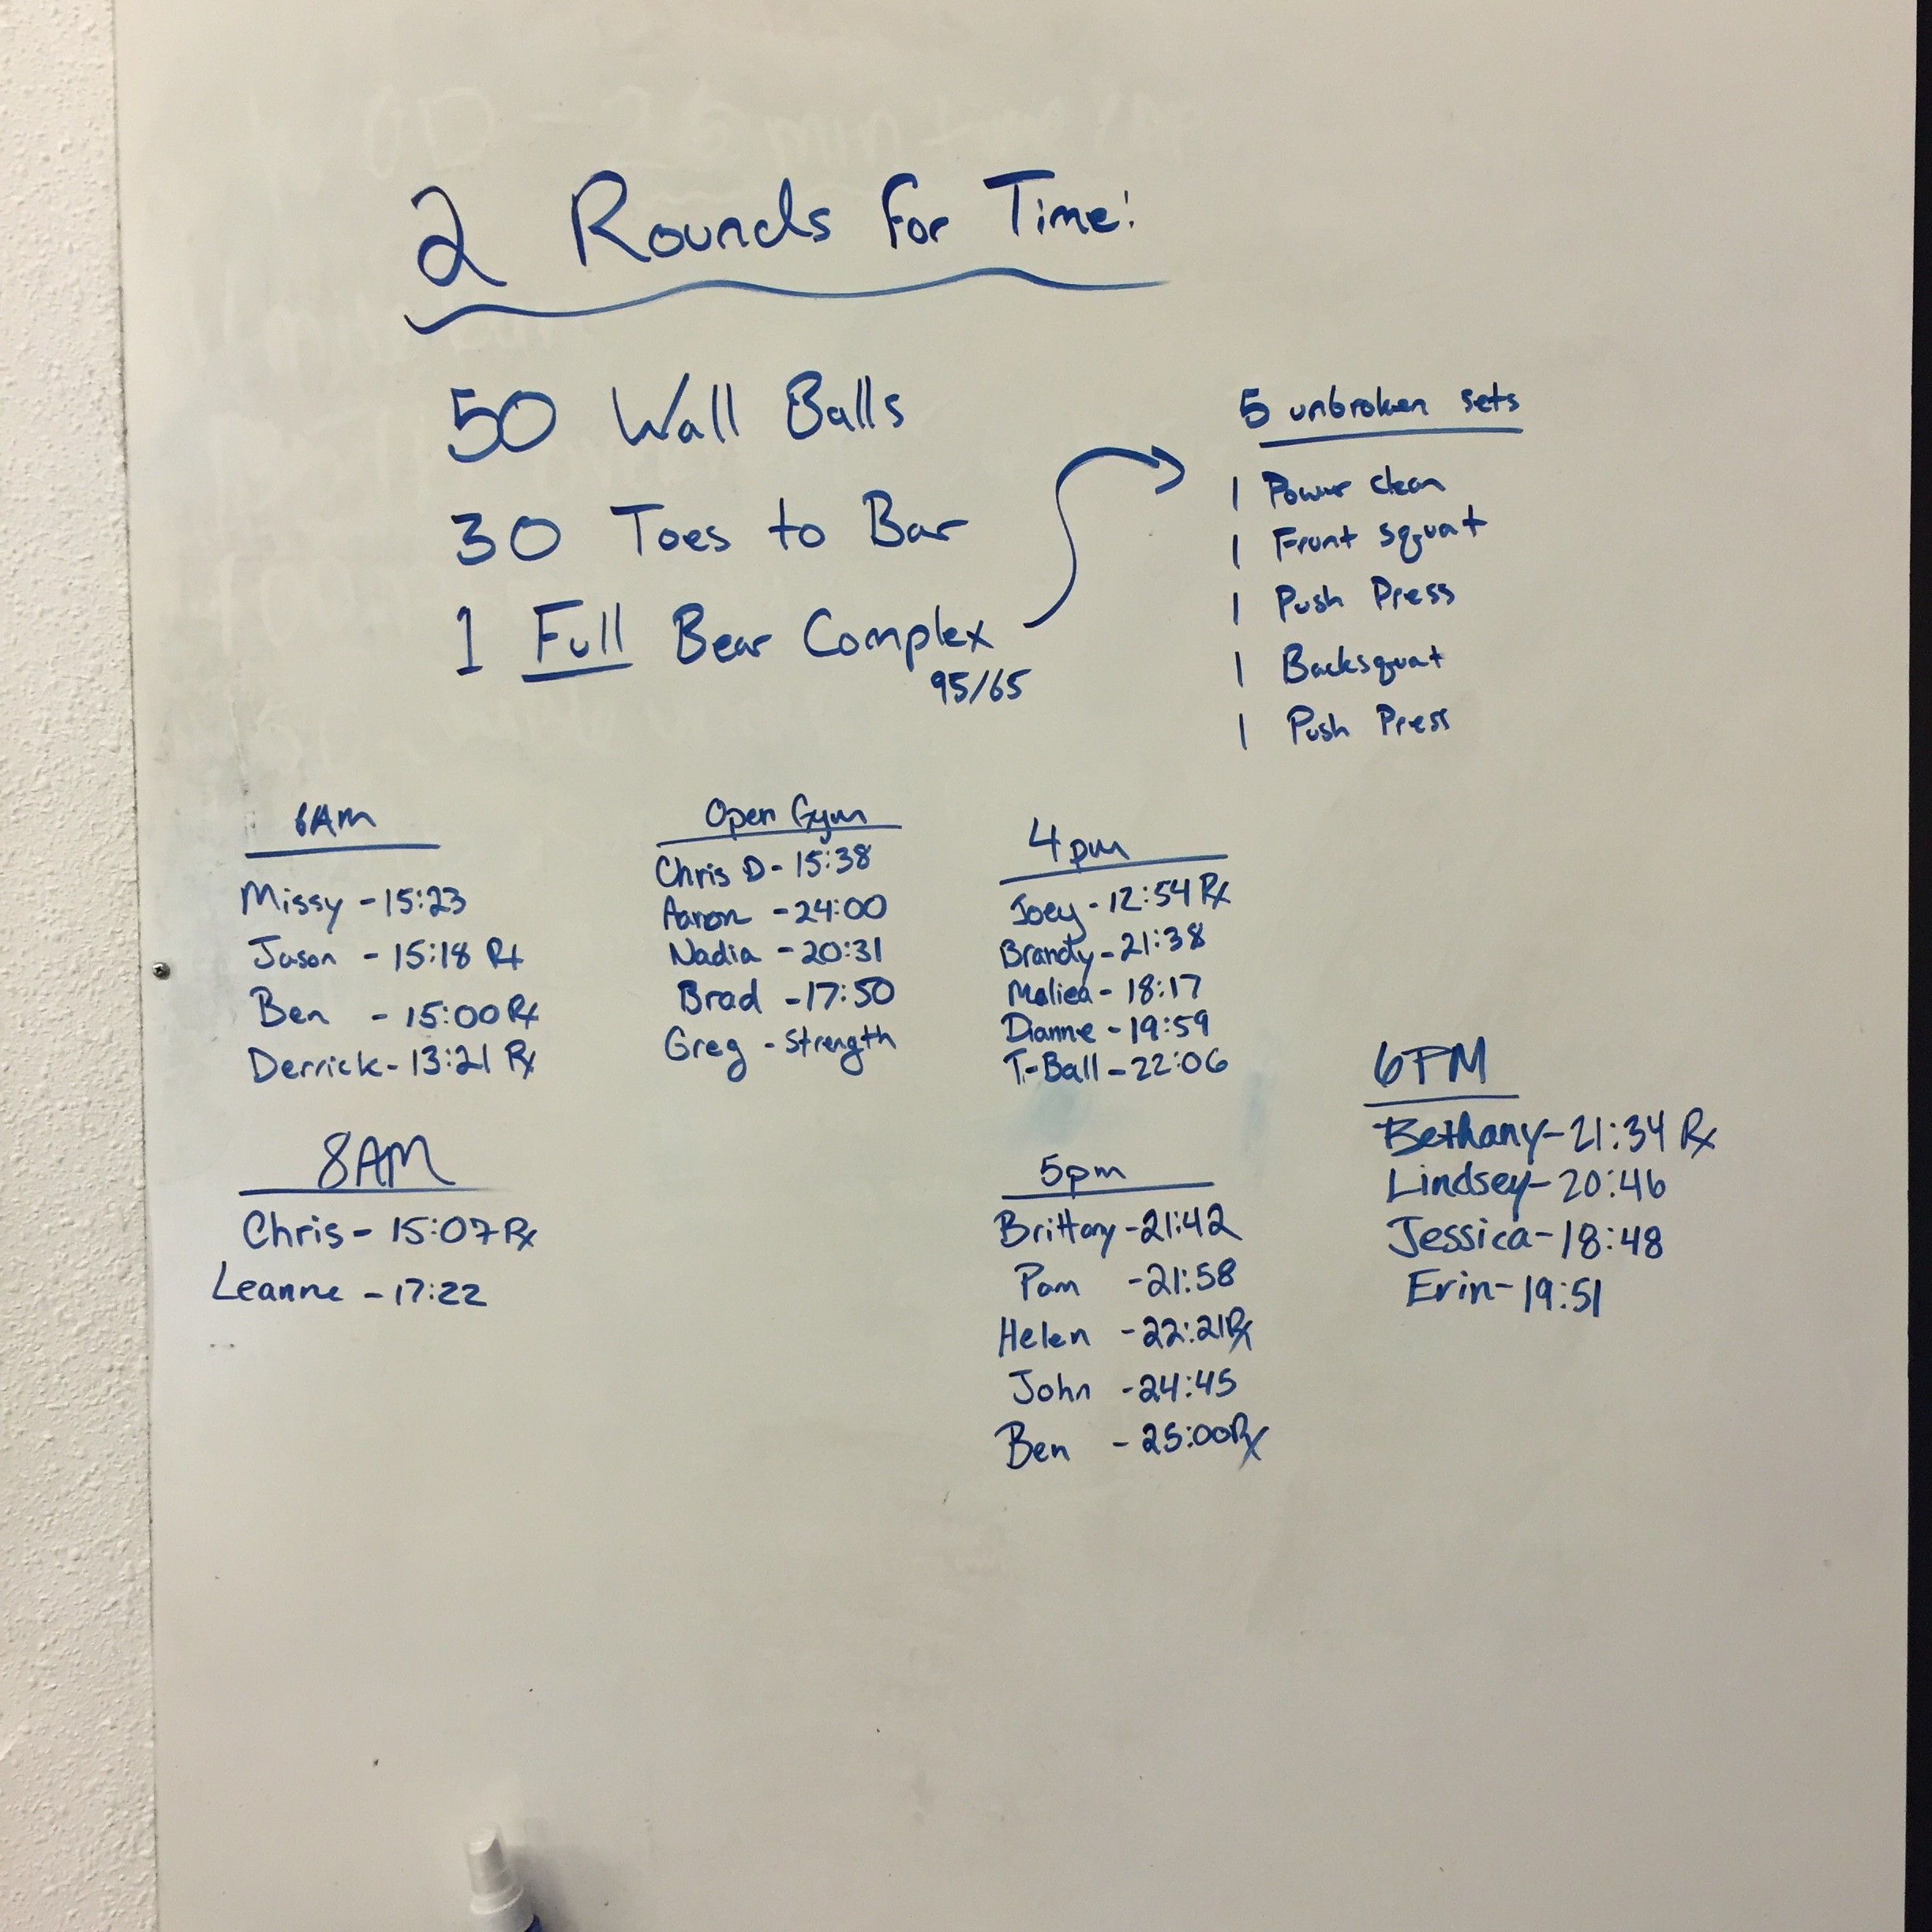 2 Rounds For Time:
50 Wall Balls
30 Toes to Bar
1 Full Bear Complex
95/65
5 unbroken sets
1 Power clean
1 Front squat
1 Push Press
1 Backsquat
1 Push Press
6Am
Missy - 15:23
Jason - 15:18 Rx
Ben - 15:00 Rx
Derrick - 13:21 Rx
8AM
Chris - 15:07 Rx
Leanne - 17:22
Open Gym
Chris D - 15:38
Aaron - 24:00
Nadia - 20:31
Brad - 17:50
Greg - Strength
4pm
Joey - 12:54 Rx
Brandy - 21:38
Maliea - 18:17
Dianne - 19:59
T-Ball - 22:06
5pm
Brittany - 21:42
Pam - 21:58
Helen - 22:21 Rx
John - 24:45
Ben - 25:00 Rx
6PM
Bethany - 21:34 Rx
Lindsey - 20:46
Jessica - 18:48
Erin - 19:51